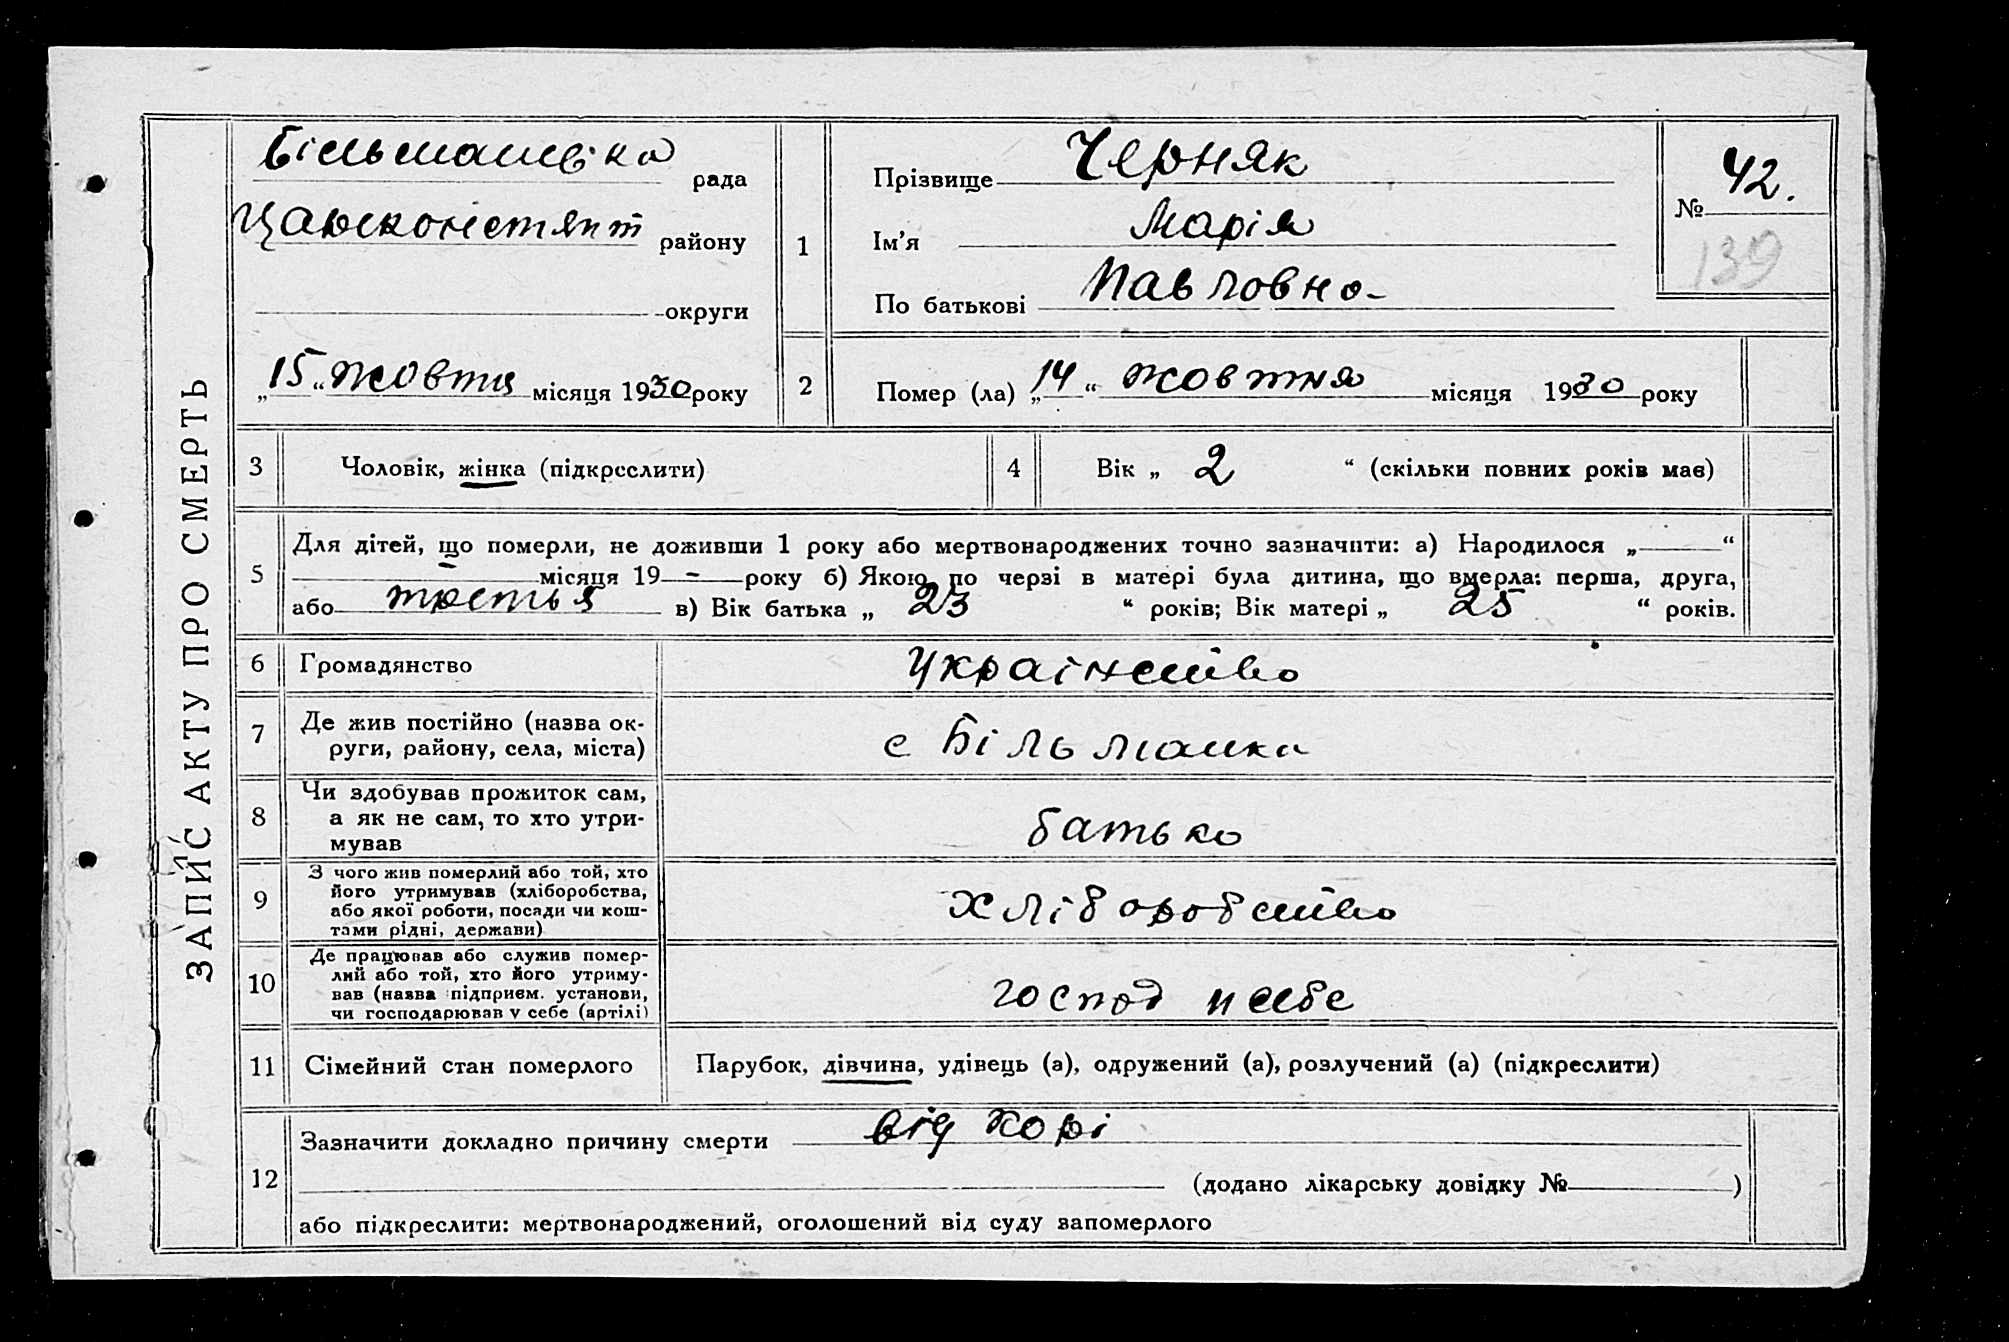 ЗАПИС АКТУ ПРО СМЕРТЬ
Більманівка рада
району
округи
„15“ жовтня місяця 1930 року
1
Прізвище Черняк
Ім’я Марія
По батькові Павловно
№ 42.
139
2
Помер (ла) „14“ жовтня місяця 1930 року
3 Чоловік, жінка (підкреслити)
4 Вік „ 2 “ (скільки повних років має)
5
Для дітей, що померли, не доживши 1 року або мертвонароджених точно зазначити: а) Народилося „——“
місяця 19 - року б) Якою по черзі в матері була дитина, що вмерла: перша, друга,
або третья в) Вік батька „ 23 “ років; Вік матері „ 25 “ років.
6 Громадянство
Українство
7 Де жив постійно (назва ок-
руги, району, села, міста)
с Більманка
8 Чи здобував прожиток сам,
а як не сам, то хто утри-
мував
батько
9 З чого жив померлий або той, хто
його утримував (хліборобства,
або якої роботи, посади чи кош-
тами рідні, держави)
хліборобство
10 Де працював або служив помер-
лий або той, хто його утриму-
вав (назва підприєм. установи,
чи господарював у себе (артілі)
господ и себе
11 Сімейний стан померлого
Парубок, дівчина, удівець (а), одружений (а), розлучений (а) (підкреслити)
12
Зазначити докладно причину смерти від хорі
(додано лікарську довідку № )
або підкреслити: мертвонароджений, оголошений від суду запомерлого